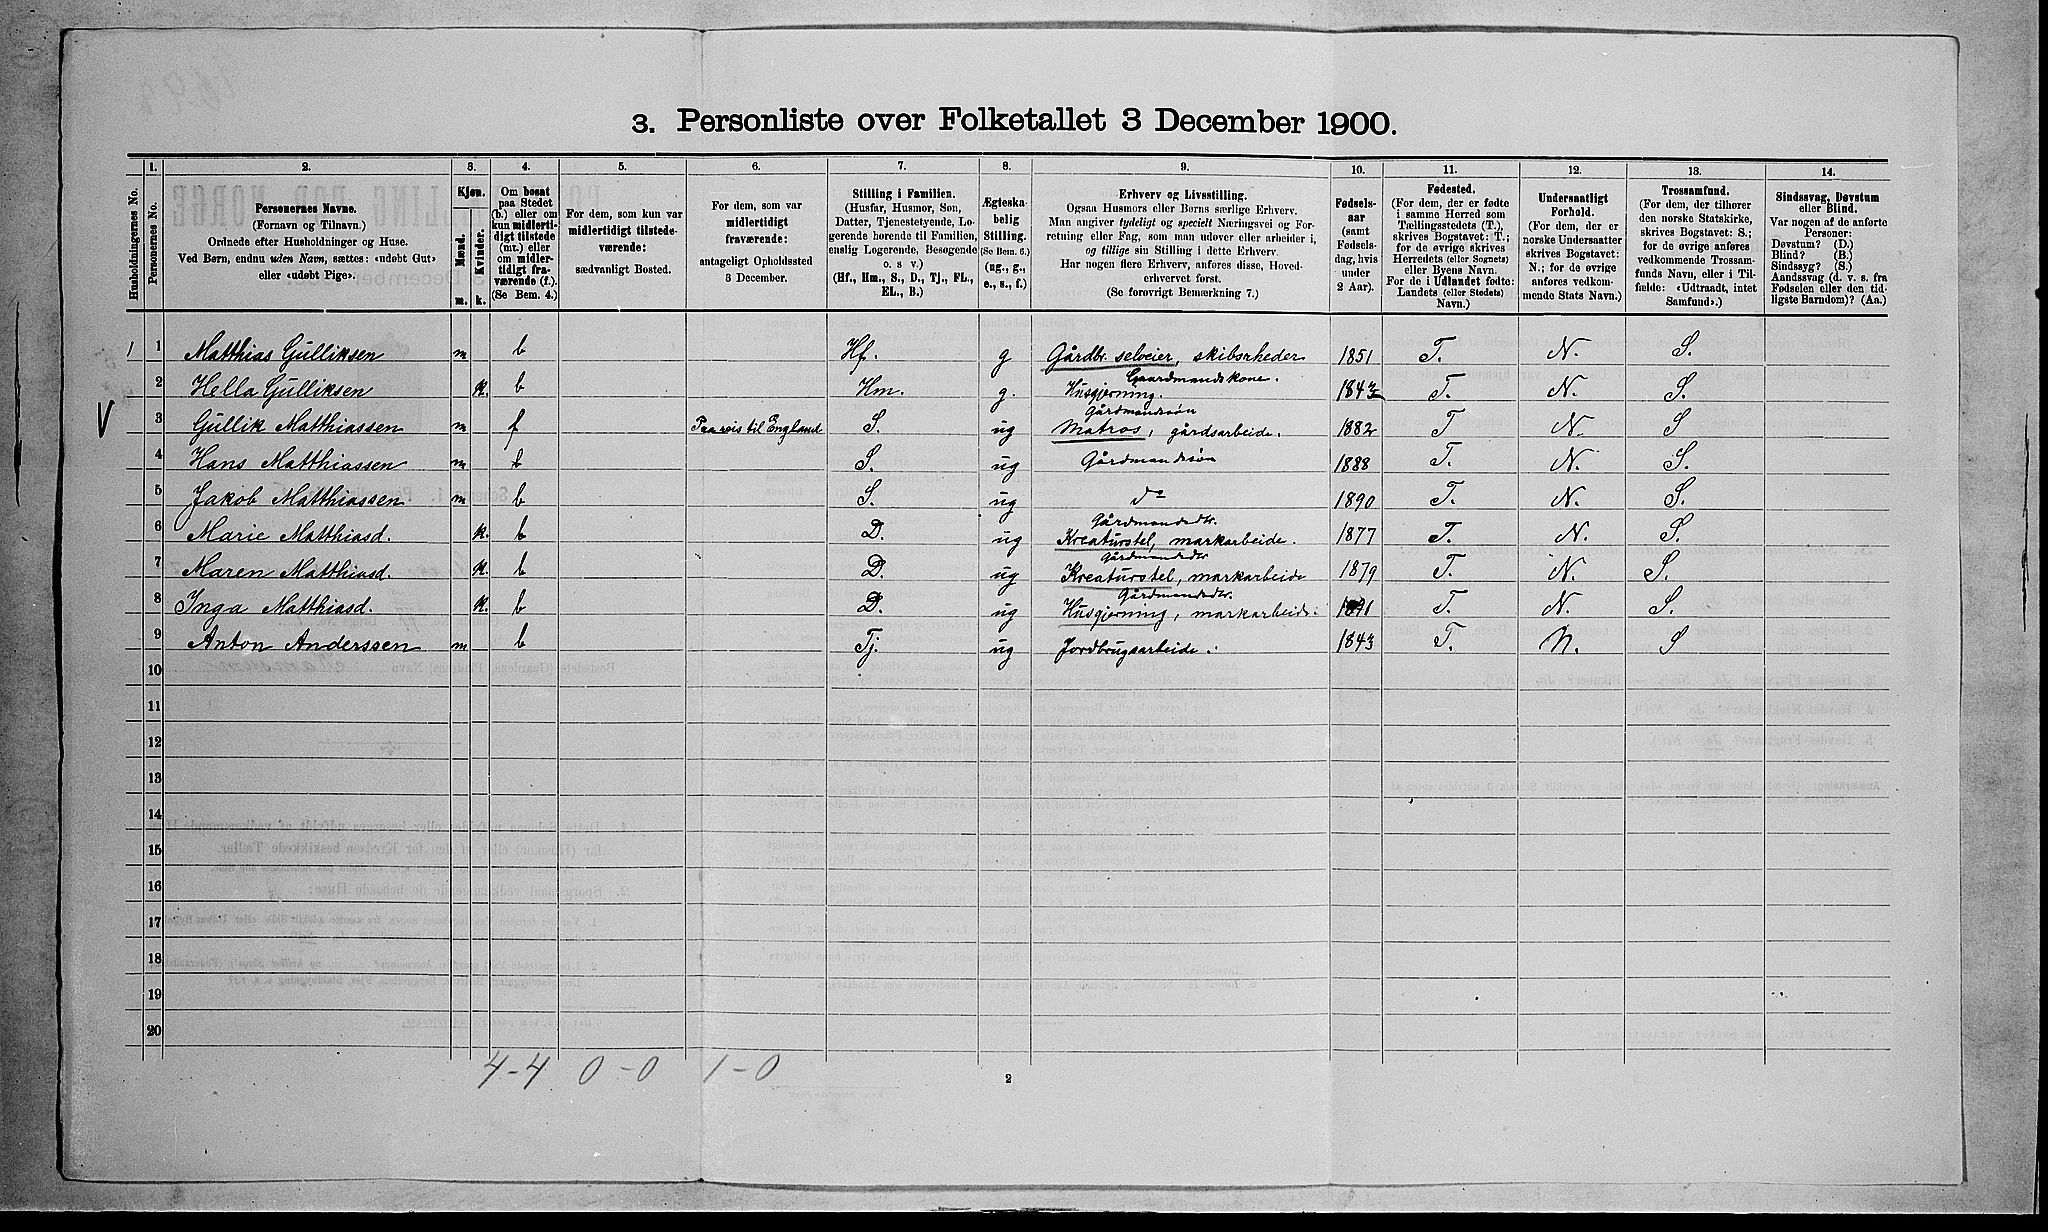 3. Personliste over Folketallet 3 December 1900.
1. 2. 3. 4. 5. 6. 7. 8. 9. 10. 11. 12. 13. 14.
Husholdningernes No.
Personernes No.
Personernes Navne.
(Fornavn og Tilnavn.)
Ordnede efter Husholdninger og Huse.
Ved Børn, endnu uden Navn, sættes: «udøbt Gut»
eller «udøbt Pige».
Kjøn.
Mænd.
Kvinder.
m. k.
Om bosat
paa Stedet
(b.) eller om
kun midler-
tidigt tilstede
(mt.) eller
om midler-
tidigt fra-
værende (f.).
(Se Bem. 4.)
For dem, som kun var
midlertidigt tilstede-
værende:
sædvanligt Bosted.
For dem, som var
midlertidigt
fraværende:
antageligt Opholdssted
3 December.
Stilling i Familien.
(Husfar, Husmor, Søn,
Datter, Tjenestetyende, Lo-
gerende hørende til Familien,
enslig Logerende, Besøgende
o. s. v.)
(Hf., Hm., S., D., Tj., FL.,
EL., B.)
Ægteska-
belig
Stilling.
(Se Bem. 6.)
(ug., g.,
e., s., f.)
Erhverv og Livsstilling.
Ogsaa Husmors eller Børns særlige Erhverv.
Man angiver tydeligt og specielt Næringsvei og For-
retning eller Fag, som man udover eller arbeider i,
og tillige sin Stilling i dette Erhverv.
Har nogen flere Erhverv, anføres disse, Hoved-
erhvervet først.
(Se forøvrigt Bemærkning 7.)
Fødsels-
aar
(samt
Fødsels-
dag, hvis
under
2 Aar).
Fødested.
(For dem, der er fødte
i samme Herred som
Tællingsstedets (T.),
skrives Bogstavet: T.;
for de øvrige skrives
Herredets (eller Sognets)
eller Byens Navn.
For de i Udlandet fødte:
Landets (eller Stedets)
Navn.)
Undersaatligt
Forhold.
(For dem, der er
norske Undersaatter
skrives Bogstavet:
N.; for de øvrige
anføres vedkom-
mende Stats Navn.)
Trossamfund.
(For dem, der tilhører
den norske Statskirke,
skrives Bogstavet: S.;
for de øvrige anføres
vedkommende Trossam-
funds Navn, eller i Til-
fælde: «Udtraadt, intet
Samfund».)
Sindssvag, Døvstum
eller Blind.
Var nogen af de anførte
Personer:
Døvstum? (D.)
Blind? (B.)
Sindssyg? (S.)
Aandssvag (d. v. s. fra
Fødselen eller den tid-
ligste Barndom)? (Aa.)
1 1 Matthias Gulliksen m b Hf. g Gårdbr. selveier, skibsrheder 1851 T. N. S.
Gaardmandskone.
2 Hella Gulliksen k. b Hm. g. Husgjerning. 1843 T. N. S.
Gårdmandssøn
V 3 Gullik Matthiassen m f Paa reis til England S. ug Matros, gårdsarbeide. 1882 T N. S
4 Hans Matthiassen m b S. ug Gårdmandssøn 1888 T. N. S.
5 Jakob Matthiassen m b S. ug do 1890 T. N. S.
Gårdmandsdtr.
6 Marie Matthiasd. k. b D. ug Kreaturstel, markarbeide. 1877 T. N. S.
Gårdmandsdtr
7 Maren Matthiasd. k. b D. ug Kreaturstel, markarbeide 1879 T. N. S.
Gårdmandsdtr.
8 Inga Matthiasd. k. b D. ug Husgjerning, markarbeide. T. N. S.
9 Anton Anderssen m b Tj. ug Jordbrugsarbeide. 1843 T. N. S
10
11
12
13
14
15
16
17
18
19
20
4-4 0-0 1-0
2